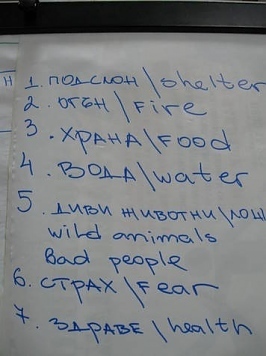 1. ПОДСЛОН \ shelter
2. ОГЪН \ Fire
3. ХРАНА \ FOOD
4. ВОДА \ water
5. ДИВИ ЖИВОТНИ \
wild animals
Bad people
6. СТРАХ \ Fear
7. ЗДРАВЕ \ health